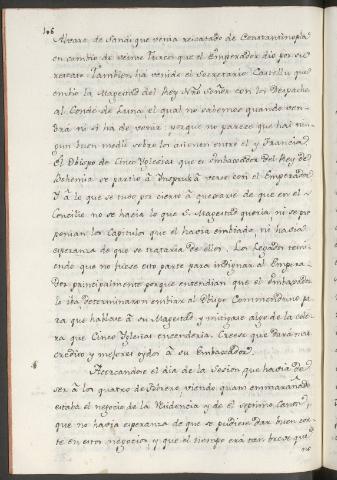 106
Alvaro de Sande que venia rescatado de Constantinopla
en cambio de veinte Turcos que el Emperador dio por su
rescate. Tambien ha venido el Secretario Castellu que
embio la Magestad del Rey Nro Señor con los Despachos
al Conde de Luna el qual no sabemos quando ven-
drà ni si ha de venir, porque no parece que hai nin-
gun buen medio sobre los assientos entre el y Francia.
El Obispo de Cinco Yglesias que es Embaxador del Rey de
Bohemia se partio à Inspruk à verse con el Emperador
Y à lo que se tubo por cierto à quexarse de que en el
Concilio no se hacia lo que S. Magestad queria, ni se pro
ponian los Capitulos que el havia embiado, ni havia
esperanza de que se trataria de ellos. Los Legados temi-
endo que no fuese esto parte para indignar al Empera-
dor principalmente porque entendian que el Embaxador
lo iba, determinaron embiar al Obispo Commendono pa
ra que hablase à su Magestad y mitigase algo de la cole-
ra que Cinco Yglesias encenderia. Creese que darà mas
credito y mejores oydos à su Embaxador.
Acercandose el dia de la Sesion que havia de
ser à los quatro de Febrero, viendo quan enmarañado
estaba el negocio de la Residencia y de el septimo Canon,
que no havia esperanza de que se pudiese dar buen cor-
te en estos negocios, y que el tiempo era tan breve que
no